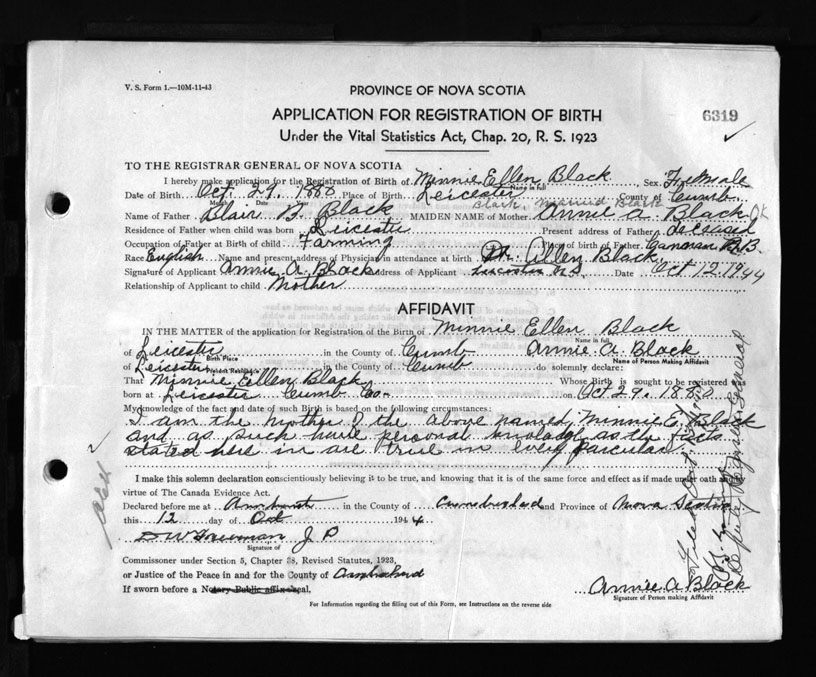 V. S. Form 1.—10M-11-43
PROVINCE OF NOVA SCOTIA
APPLICATION FOR REGISTRATION OF BIRTH
6319
Under the Vital Statistics Act, Chap. 20, R. S. 1923
TO THE REGISTRAR GENERAL OF NOVA SCOTIA
I hereby make application for the Registration of Birth of Minnie Ellen Black Sex Female
Name in full
Date of Birth Oct. 29 1880 Place of Birth Leicester County of Cumb.
Month Date Black Married Black
Name of Father Blair B. Black MAIDEN NAME of Mother Annie A Black OK
Residence of Father when child was born Leicester Present address of Father deceased
Occupation of Father at Birth of child Farming Place of birth of Father N.B.
Race English Name and present address of Physician in attendance at birth Dr. Allen Black
Signature of Applicant Annie A. Black Address of Applicant Leicester N.S. Date Oct 12 1944
Relationship of Applicant to child Mother
AFFIDAVIT
IN THE MATTER of the application for Registration of the Birth of Minnie Ellen Black
Name in full
of Leicester in the County of Cumb Annie A. Black
Birth Place Name of Person Making Affidavit
of Leicester in the County of Cumb do solemnly declare:
Present Residence
That Minnie Ellen Black Whose Birth is sought to be registered was
born at Leicester Cumb Co. on Oct 29. 1880
My knowledge of the fact and date of such Birth is based on the following circumstances:
I am the mother of the above named Minnie E. Black
and, as such have personal knowladge as the facts
stated here in are true in every parcular.
I make this solemn declaration conscientiously believing it to be true, and knowing that it is of the same force and effect as if made under oath and
virtue of The Canada Evidence Act.
Declared before me at Amherst in the County of Cumberland and Province of Nova Scotia
this 12 day of Oct 1944
D W Freeman J P
Signature of
Commissioner under Section 5, Chapter 38, Revised Statutes, 1923,
or Justice of the Peace in and for the County of Cumberland
If sworn before a Notary Public affix seal,
Annie A Black
Signature of Person making Affidavit
For Information regarding the filling out of this Form, see Instructions on the reverse side
Deputy Registrar General